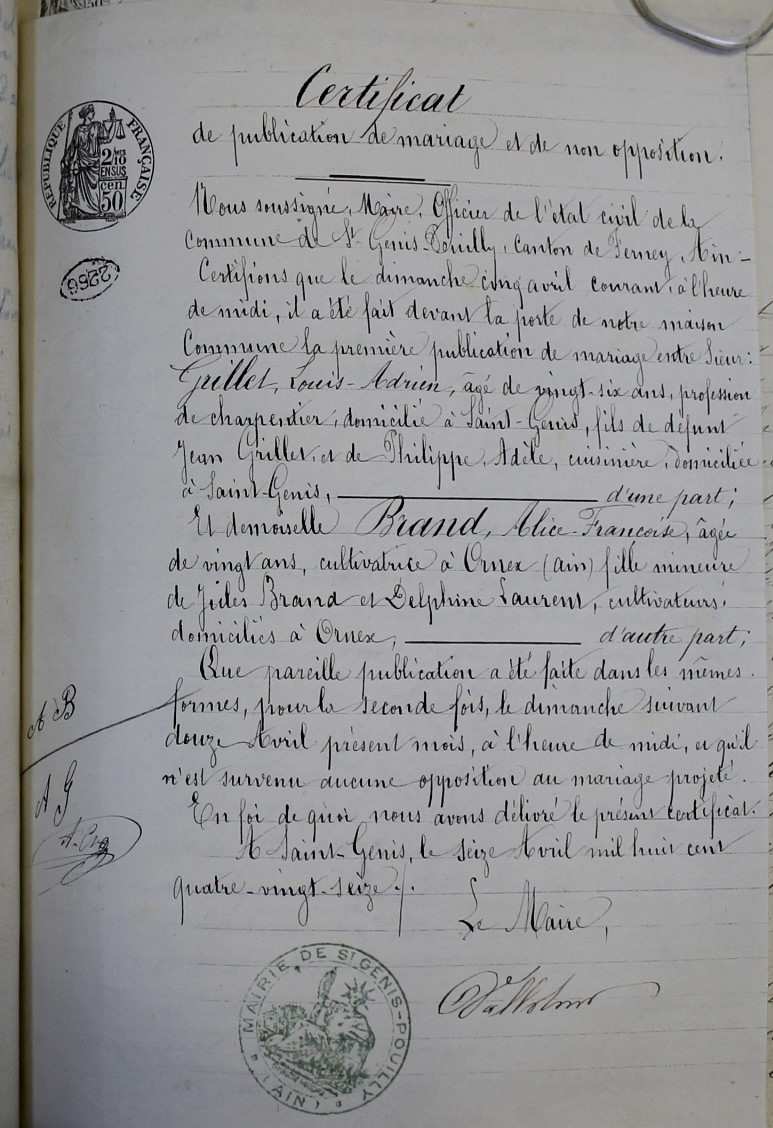 Certificat
de publication de mariage et de non opposition.
RÉPUBLIQUE FRANÇAISE
2/10
EN SUS
50 cen
2286
Nous soussigné, Maire, Officier de l'état civil de la
Commune de St Genis-Pouilly, Canton de Ferney, Ain -
Certifions que le dimanche cinq avril courant, à l'heure
de midi, il a été fait devant la porte de notre maison
Commune la première publication de mariage entre Sieur:
Grillet, Louis-Adrien, âgé de vingt-six ans, profession
de charpentier, domicilié à Saint-Genis, fils de défunt
Jean Grillet, et de Philippe, Adèle, cuisinière, domiciliée
à Saint-Genis, d'une part;
Et demoiselle Brand, Alice-Françoise, âgée
de vingt ans, cultivatrice à Ornex (ain) fille mineure
de Jules Brand et Delphine Laurent, cultivateurs,
domiciliés à Ornex, d'autre part;
Que pareille publication a été faite dans les mêmes
formes, pour la seconde fois, le dimanche suivant
douze Avril présent mois, à l'heure de midi, et qu'il
n'est survenu aucune opposition au mariage projeté.
En foi de quoi nous avons délivré le présent certificat.
A Saint-Genis, le seize Avril mil huit cent
quatre-vingt-seize./.
Le Maire,
A B
A G
MAIRIE DE ST GENIS-POUILLY
(AIN)